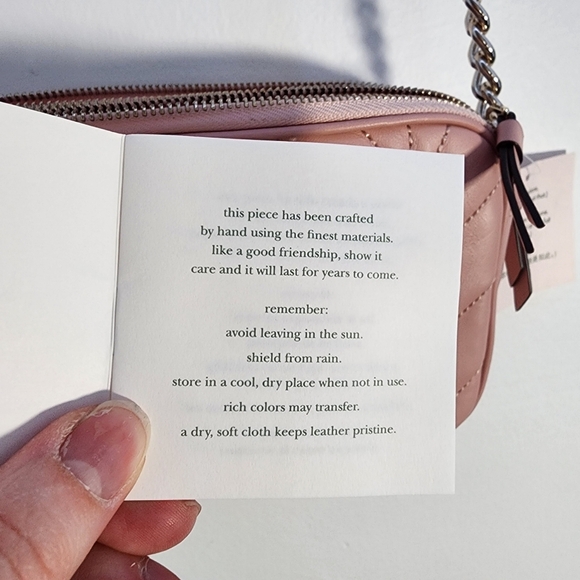 this piece has been crafted
by hand using the finest materials.
like a good friendship, show it
care and it will last for years to come.
remember:
avoid leaving in the sun.
shield from rain.
store in a cool, dry place when not in use.
rich colors may transfer.
a dry, soft cloth keeps leather pristine.